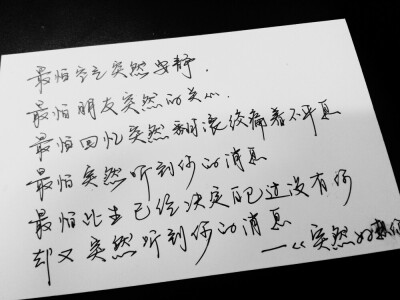 最怕空气突然安静.
最怕朋友突然的关心.
最怕回忆突然翻滚绞痛着不平息
最怕突然听到你的消息
最怕此生已经决定自己过没有你
却又突然听到你的消息
—《突然好想你